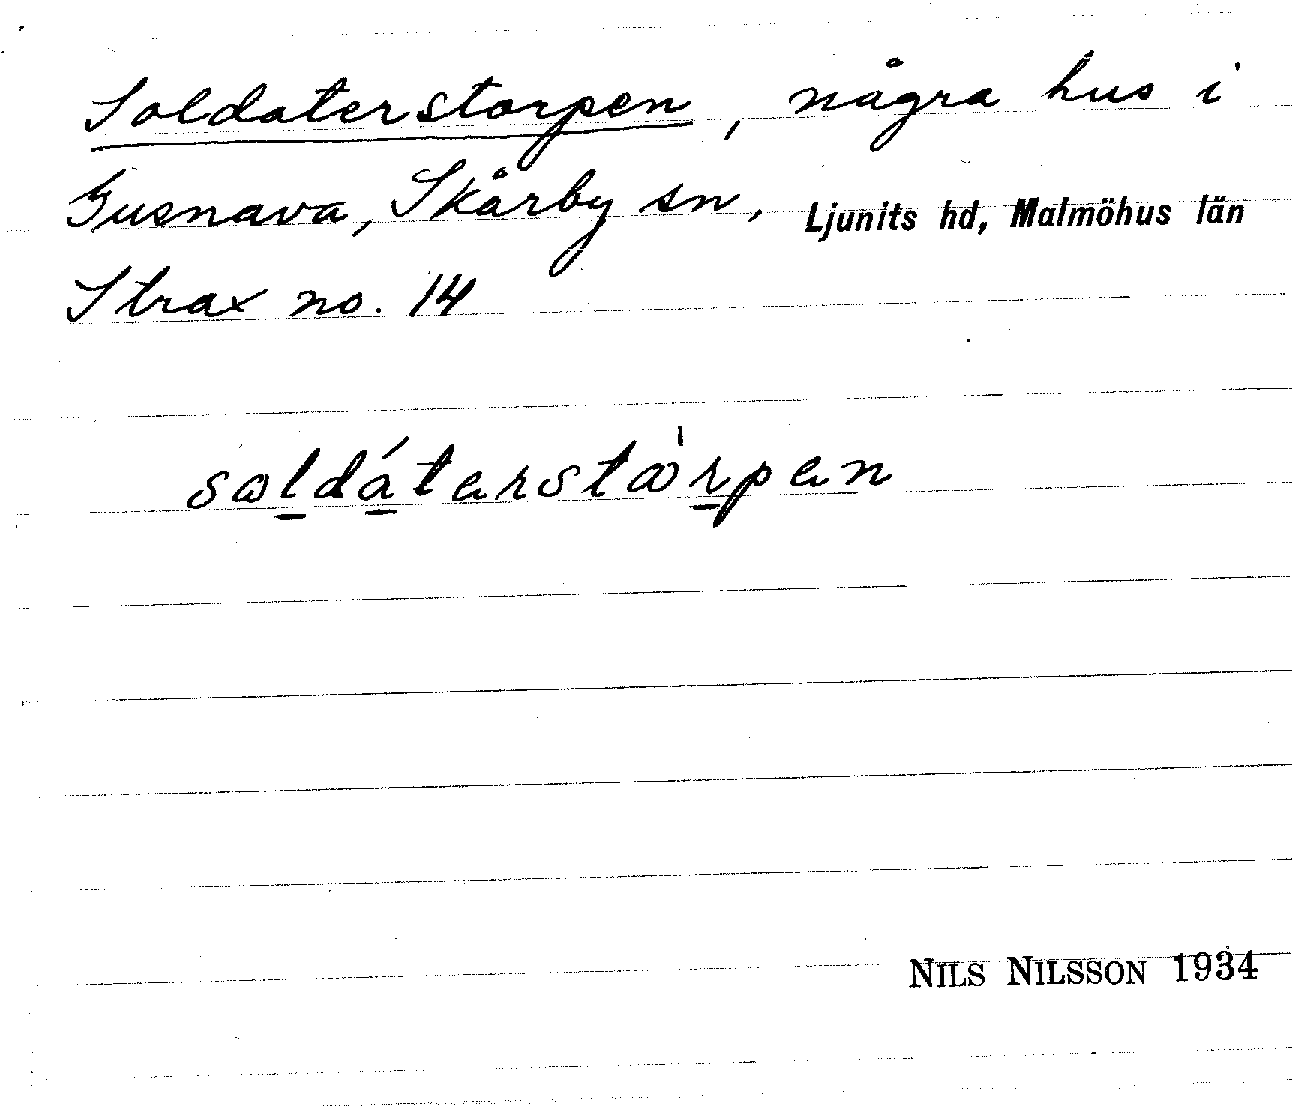 Soldaterstorpen, några hus i
Gusnava, Skårby sn, Ljunits hd, Malmöhus län
Strax no. 14
soldáterstòrpen
NILS NILSSON 1934